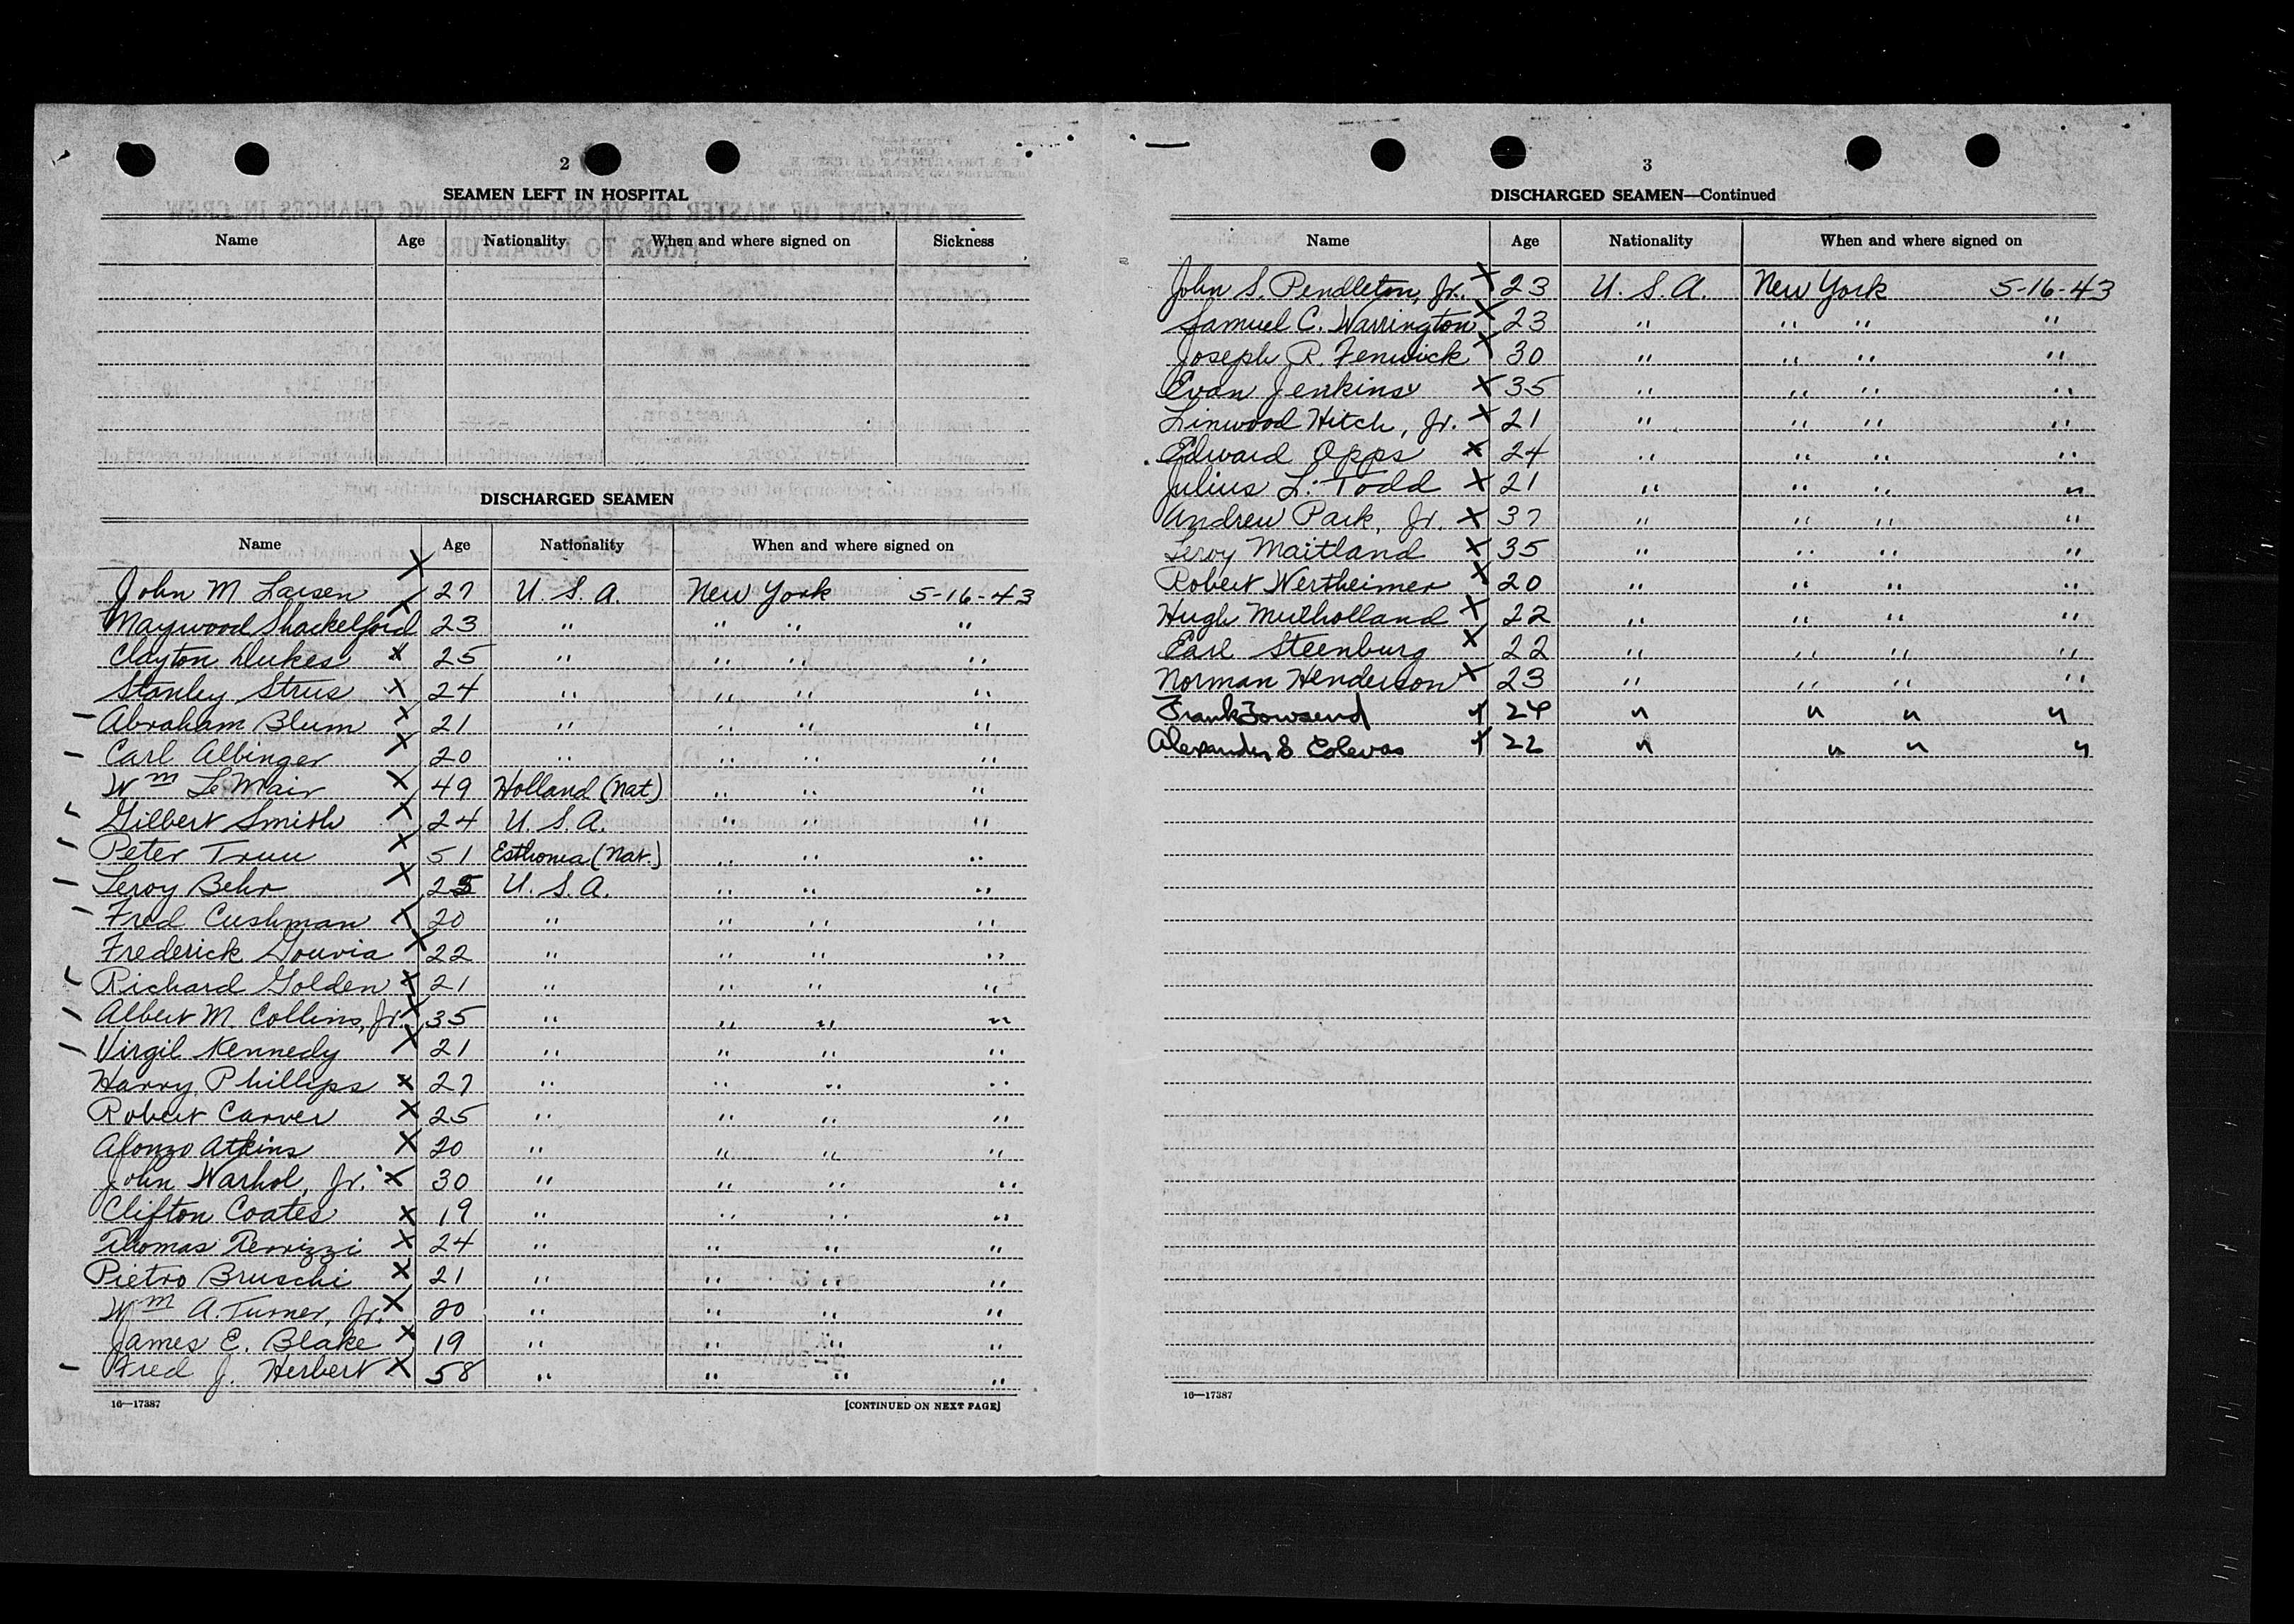 2
SEAMEN LEFT IN HOSPITAL
Name Age Nationality When and where signed on Sickness
DISCHARGED SEAMEN
Name Age Nationality When and where signed on
John M. Larsen X 27 U. S. A. New York 5-16-43
Maywood Shackelford X 23 " " " "
Clayton Dukes X 25 " " " "
Stanley Strus X 24 " " " "
Abraham Blum X 21 " " " "
Carl Albinger X 20 " " " "
Wm LeMair X 49 Holland (Nat) " " "
Gilbert Smith X 24 U. S. A. " " "
Peter Truu X 51 Esthonia (Nat.) " " "
Leroy Behr X 25 U. S. A. " " "
Fred Cushman X 20 " " " "
Frederick Gouvia X 22 " " " "
Richard Golden X 21 " " " "
Albert M. Collins, Jr. X 35 " " " "
Virgil Kennedy X 21 " " " "
Harry Phillips X 27 " " " "
Robert Carver X 25 " " " "
Afonzo Atkins X 20 " " " "
John Warhol, Jr. X 30 " " " "
Clifton Coates X 19 " " " "
Thomas X 24 " " " "
Pietro Bruschi X 21 " " " "
Wm A. Turner, Jr. X 20 " " " "
James E. Blake X 19 " " " "
Fred J. Herbert X 58 " " " "
16—17387 [CONTINUED ON NEXT PAGE]
3
DISCHARGED SEAMEN—Continued
Name Age Nationality When and where signed on
John S. Pendleton, Jr. X 23 U. S. A. New York 5-16-43
Samuel C. Warrington X 23 " " " "
Joseph R. Fenwick X 30 " " " "
Evan Jenkins X 35 " " " "
Linwood Hitch, Jr. X 21 " " " "
Edward Opps X 24 " " " "
Julius L. Todd X 21 " " " "
Andrew Park, Jr. X 37 " " " "
Leroy Maitland X 35 " " " "
Robert Wertheimer X 20 " " " "
Hugh Mulholland X 22 " " " "
Earl Steenburg X 22 " " " "
Norman Henderson X 23 " " " "
Frank Towsend X 24 " " " "
Alexander S X 22 " " " "
16—17387